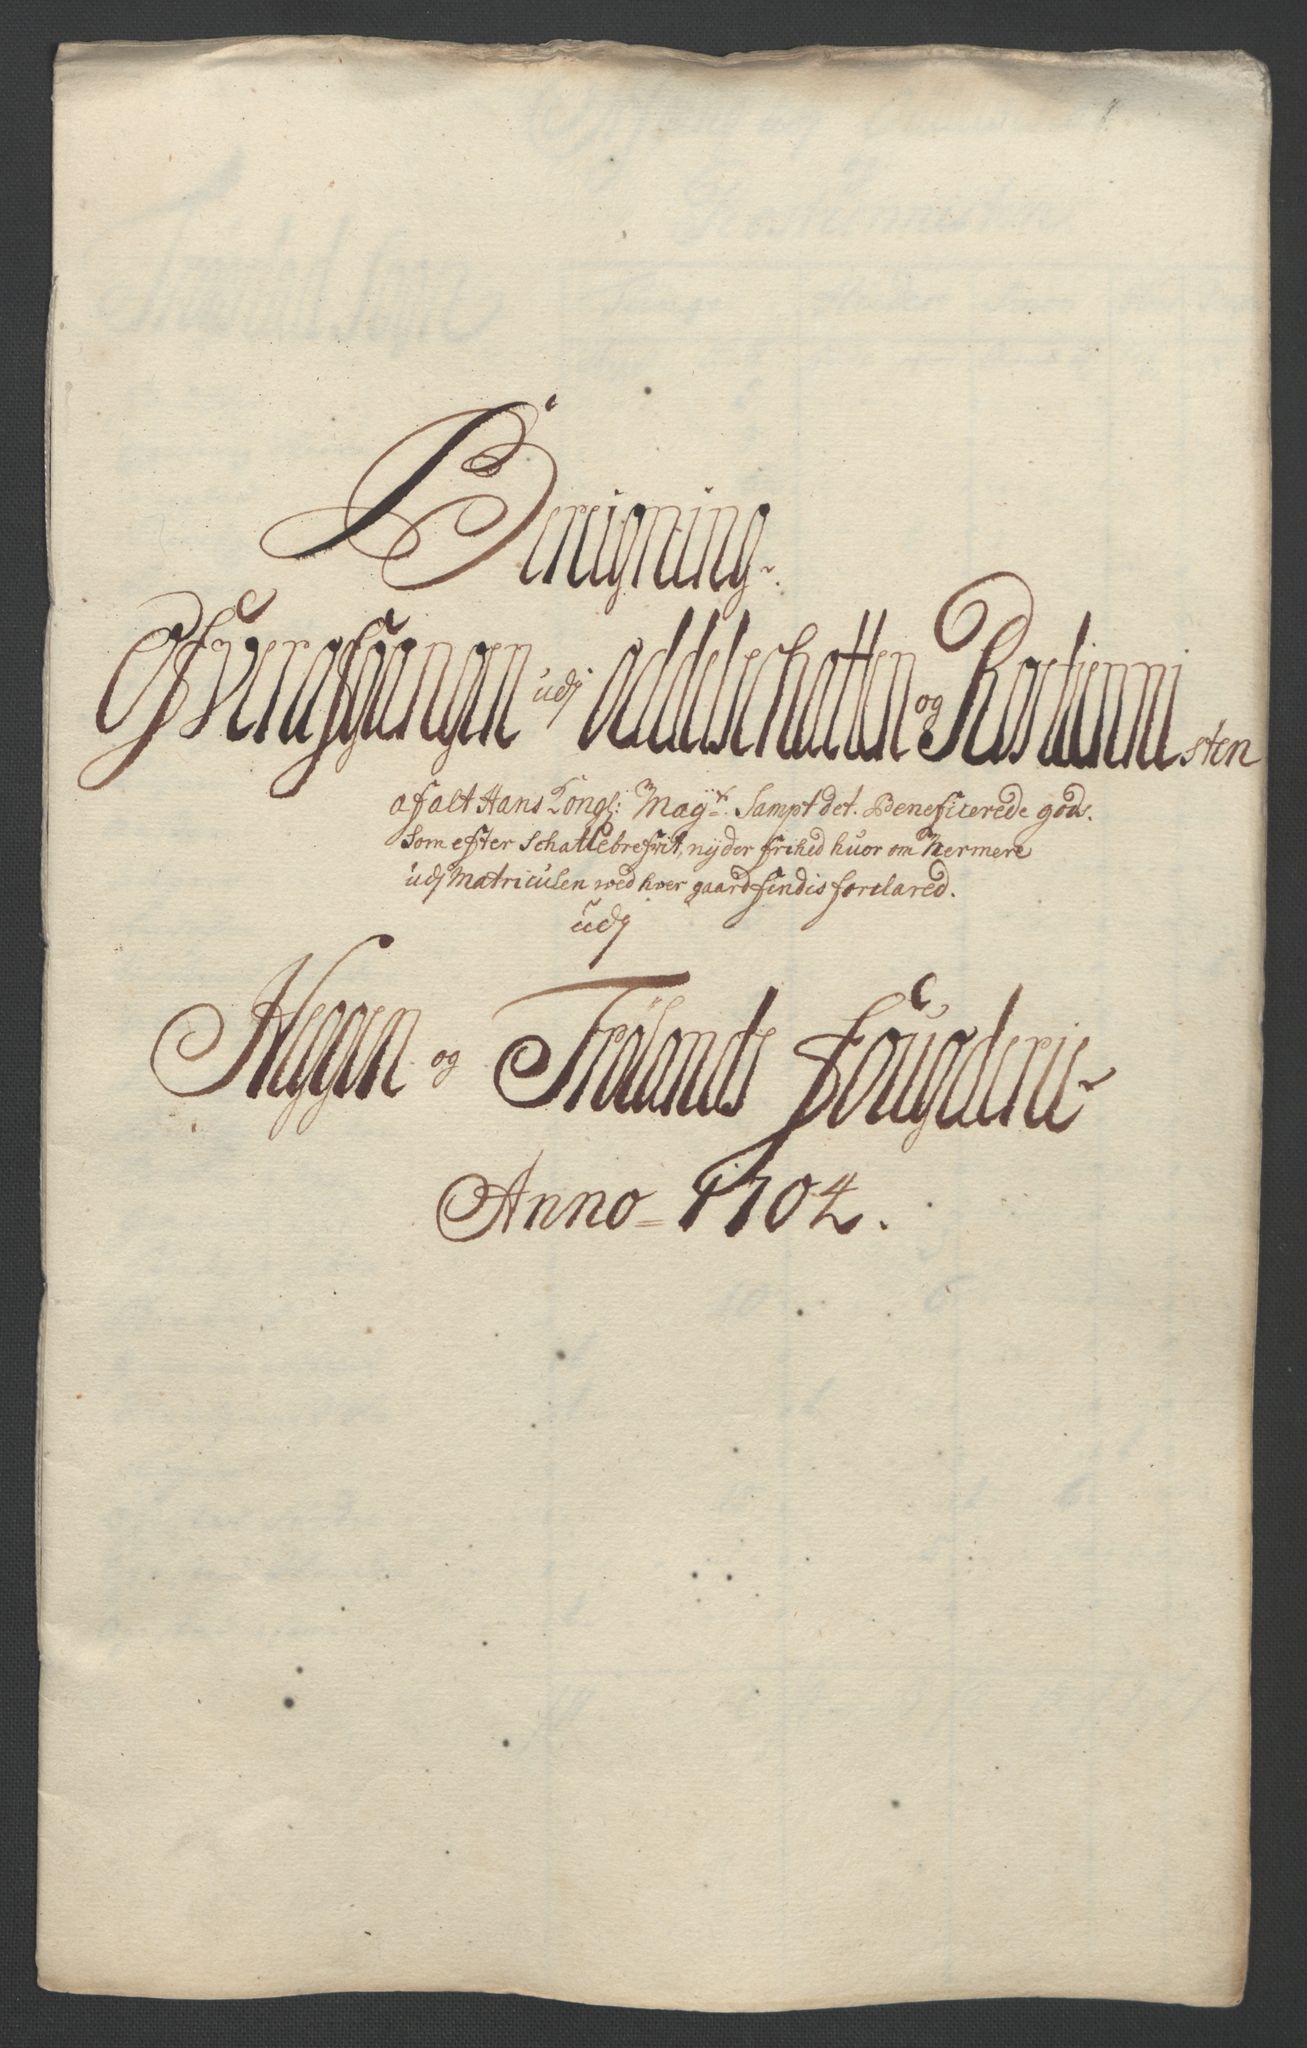 Bereigning
Ofvergaangen udj oddelschatten og Rostienni sten
af alt Hans Kongl: Mayt. Sampt det Beneficerede gods.
Som efter Schattebrefvit, nyder frihed huor om Nermere
udj Matriculen wed hver gaard findis forclared.
udj
Heggen og Frölands fougderie
Anno 1704.